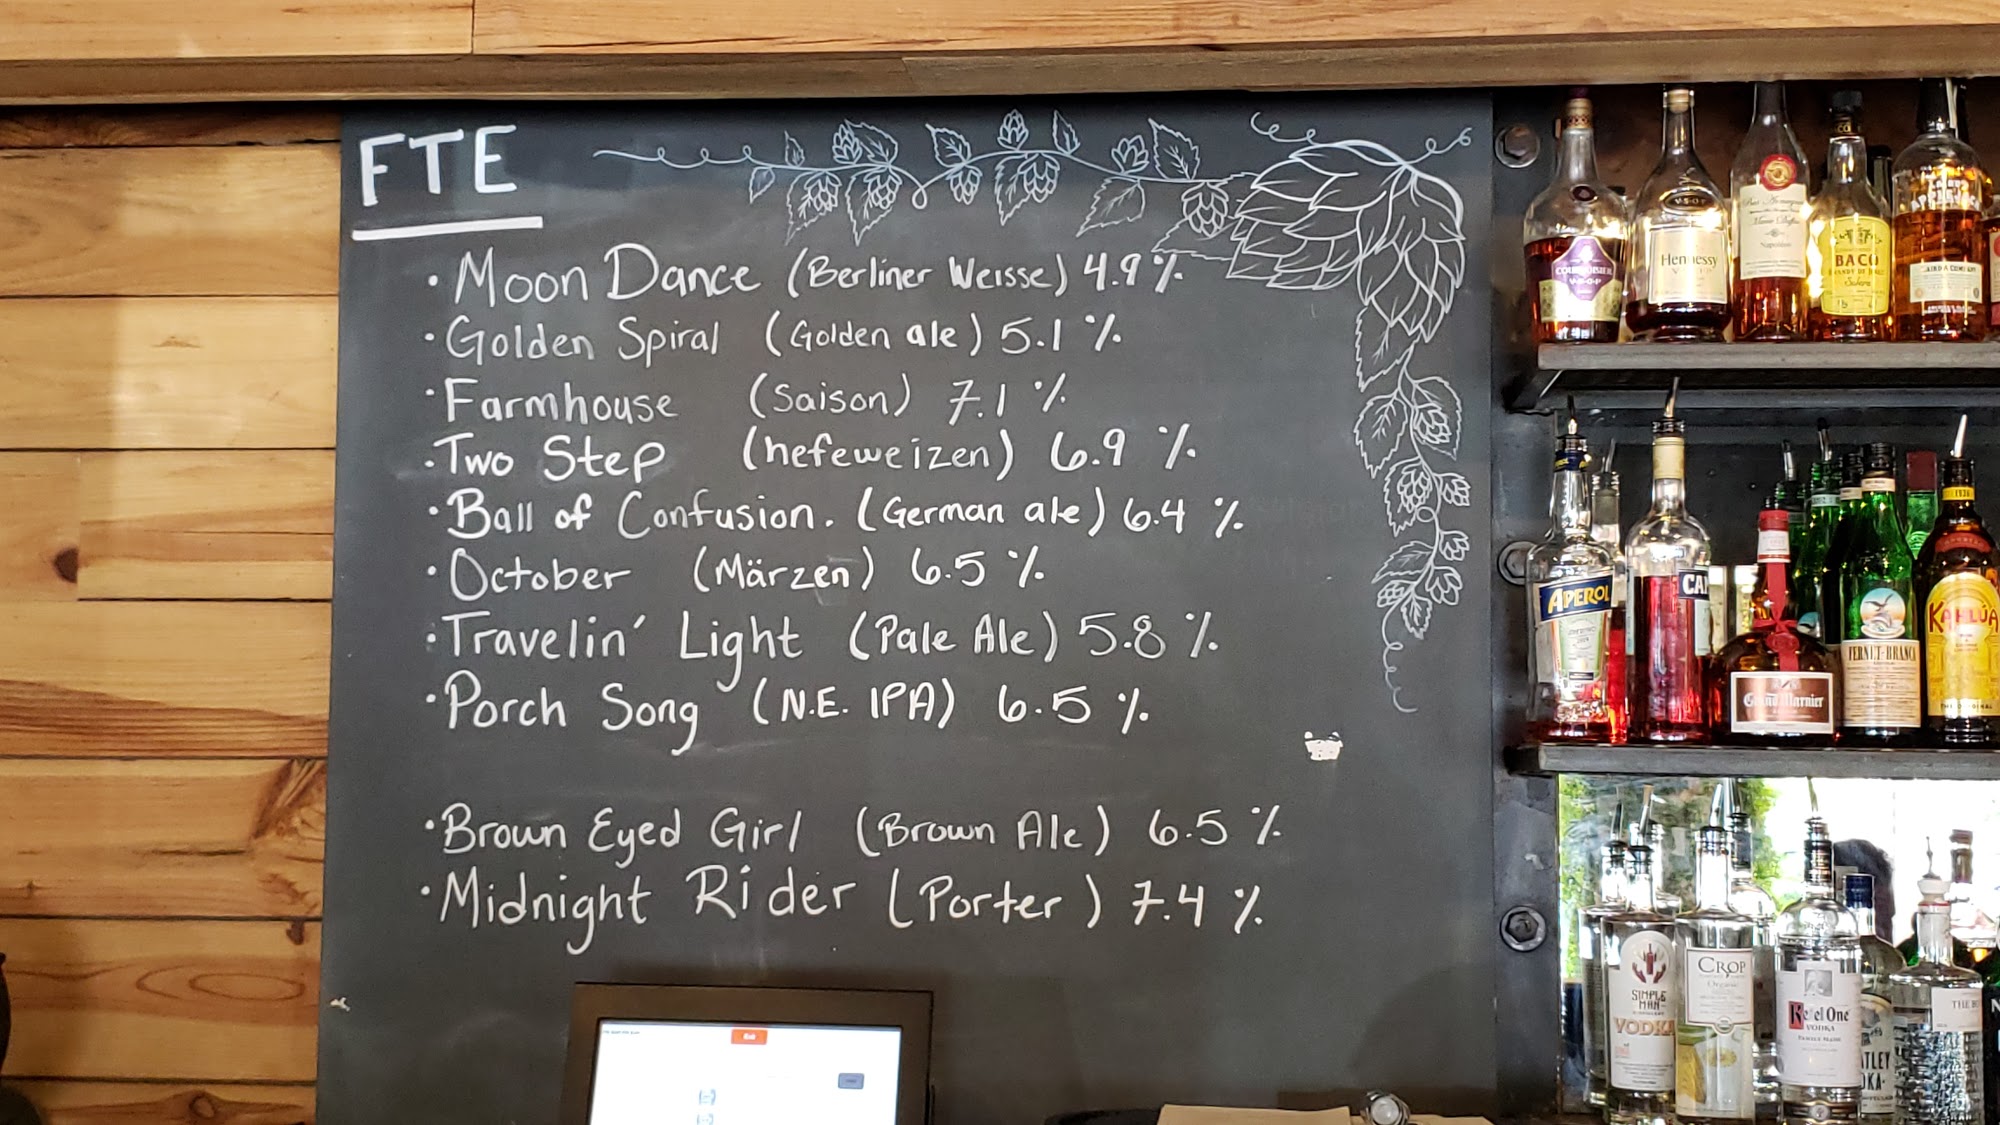 FTE
· Moon Dance (Berliner Weisse) 4.9%
· Golden Spiral (Golden ale) 5.1%
· Farmhouse (Saison) 7.1%
· Two Step (hefeweizen) 6.9%
· Ball of Confusion. (German ale) 6.4%
· October (Märzen) 6.5%
· Travelin' Light (Pale Ale) 5.8%
· Porch Song (N.E. IPA) 6.5%
· Brown Eyed Girl (Brown Ale) 6.5%
· Midnight Rider (Porter) 7.4%
COURVOISIER
V.S.O.P
V·S·O·P
Hennessy
Napoléon
BACO
APEROL
CAM
Grand Marnier
FERNET-BRANCA
KAHLÚA
SIMPLE
MAN
VODKA
CROP
Organic
Ketel One
VODKA
THE B